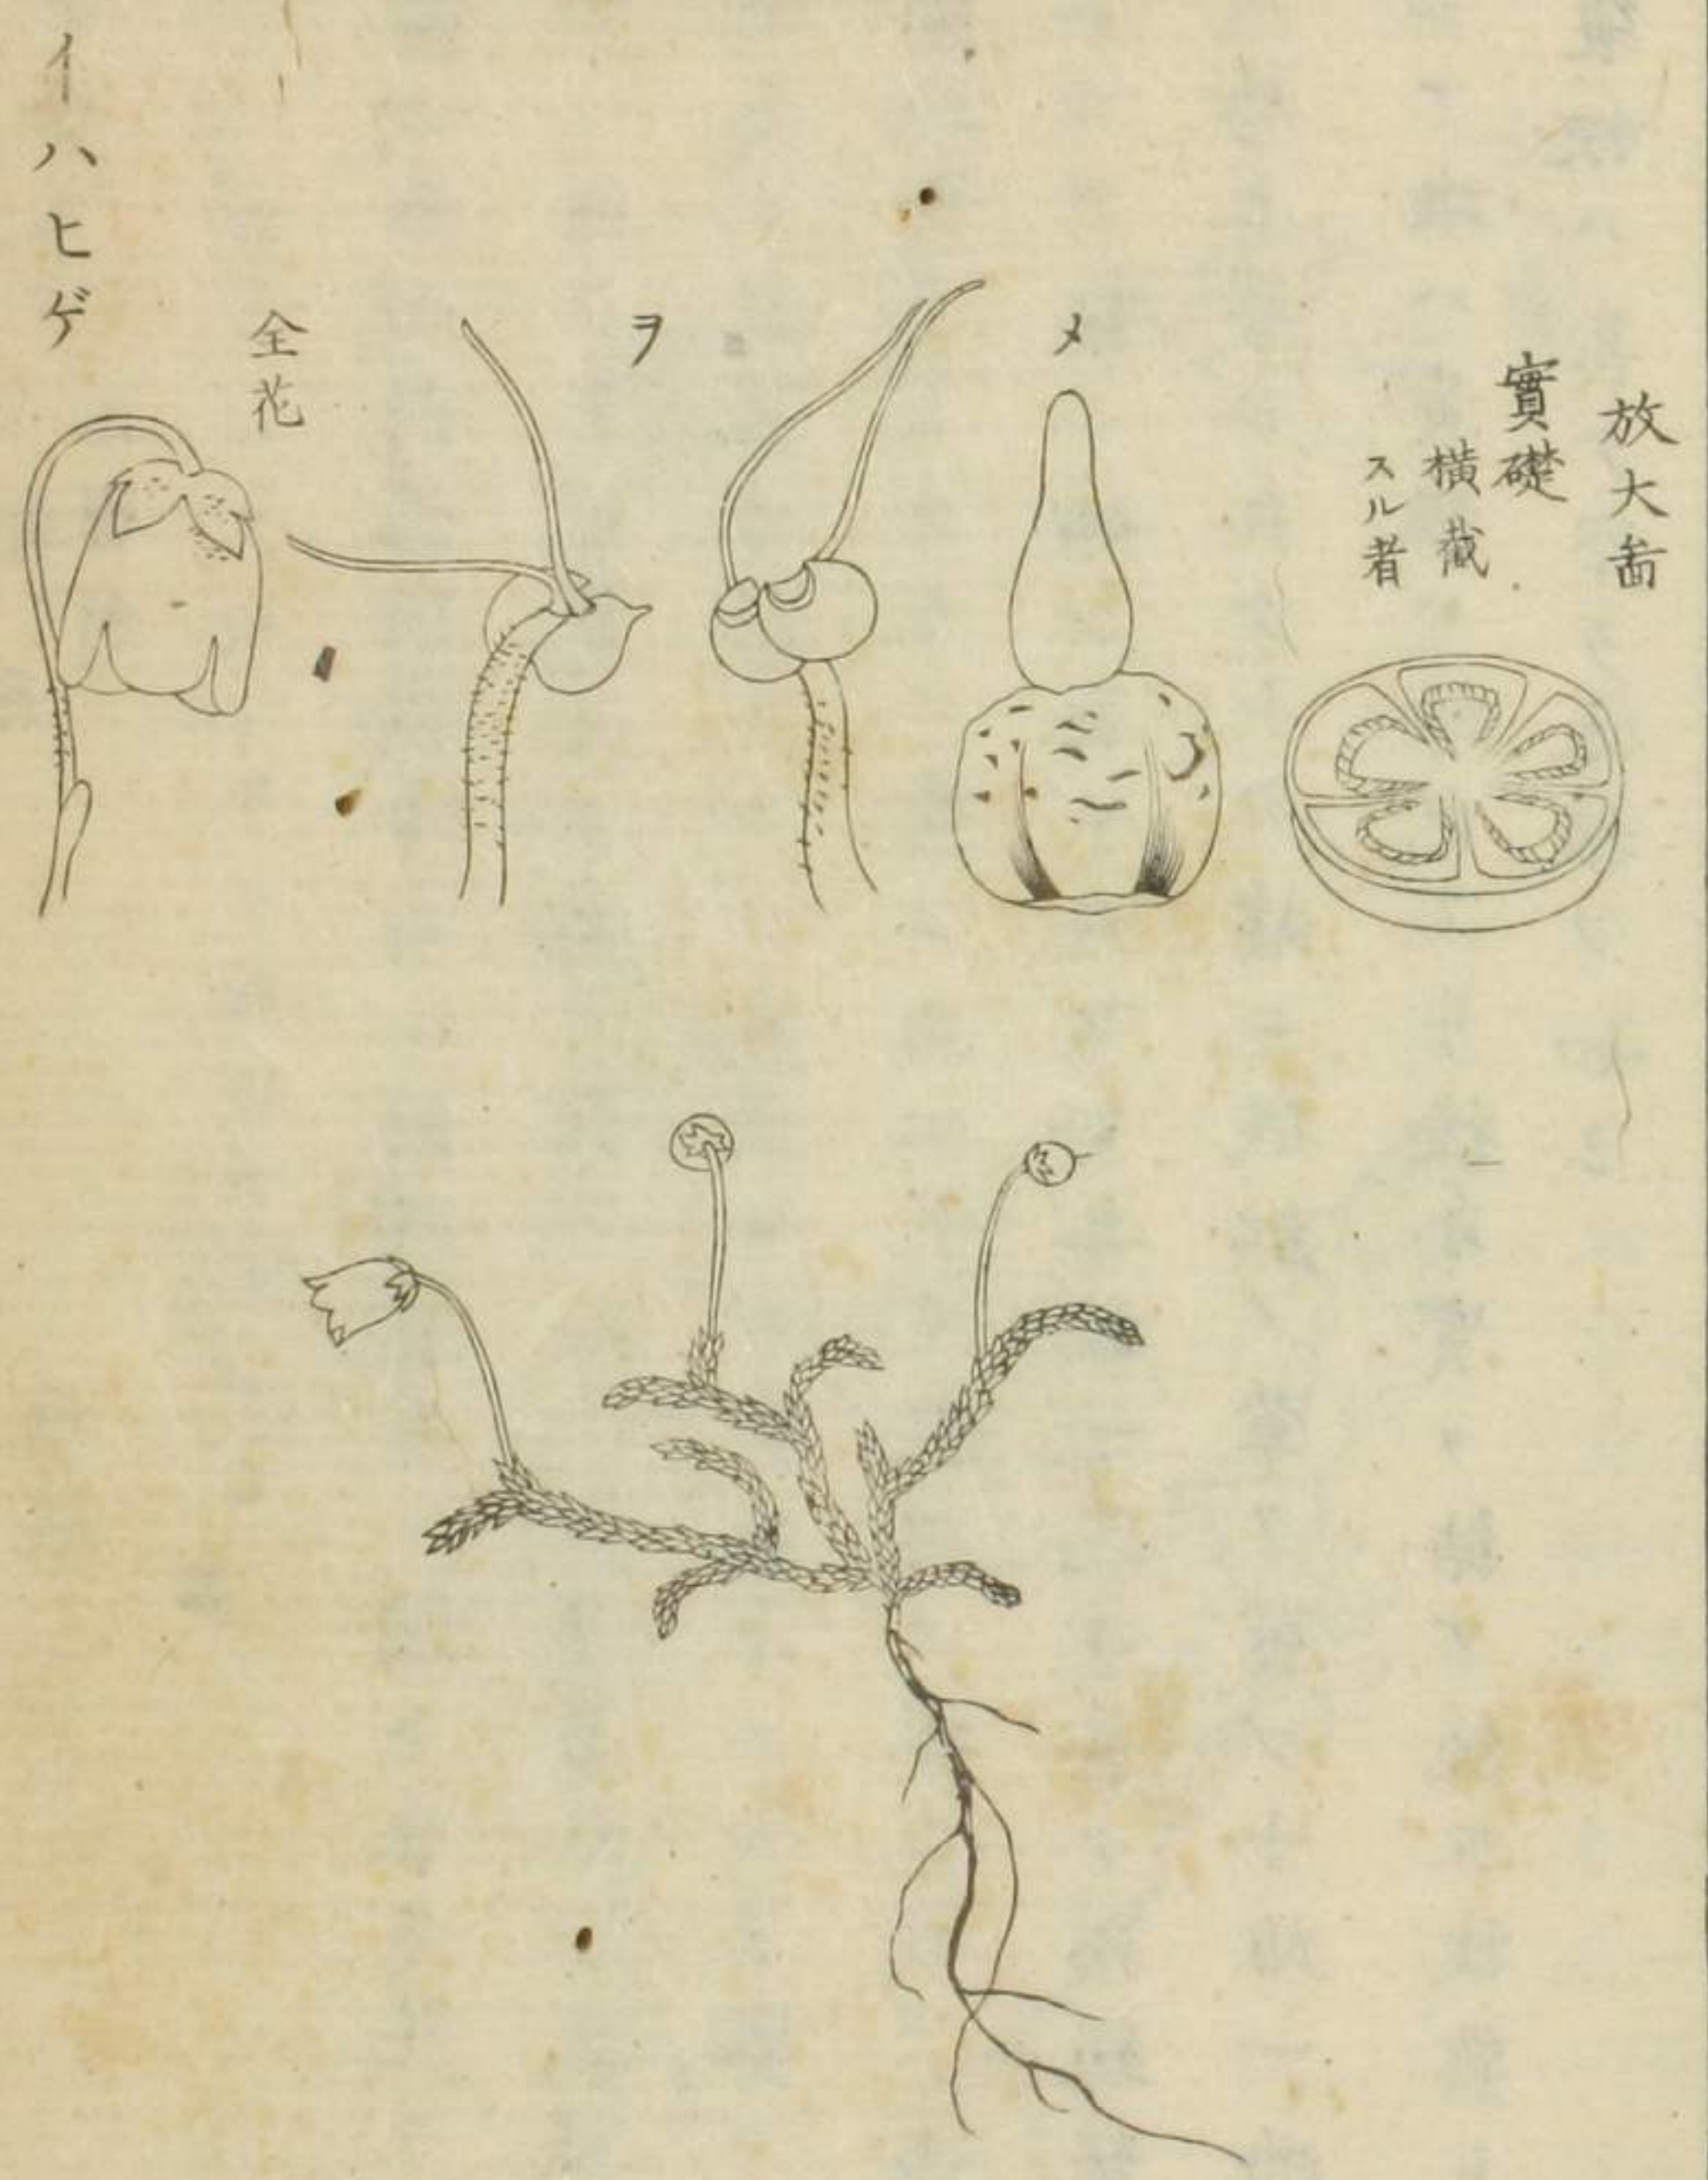 放大啚
實礎
横截
スル者
メ
ヲ
全花
イハヒゲ